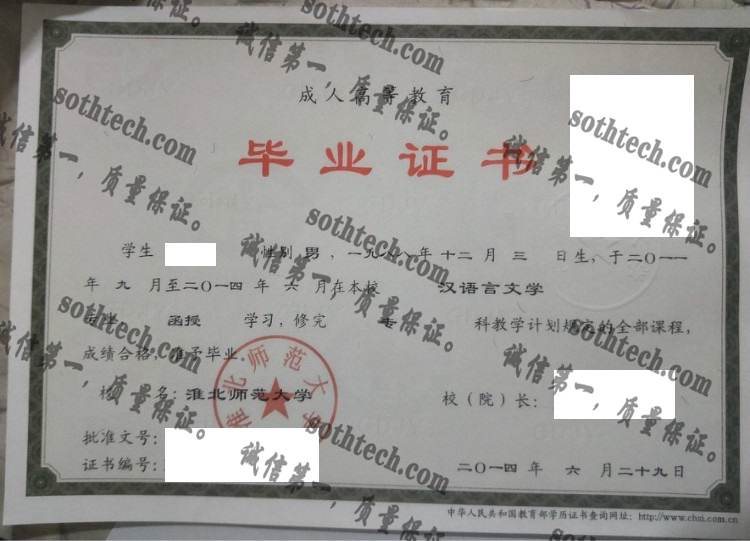 成人高等教育
毕业证书
学生 性别 男，一九八八年 十二 月 三 日生，于二〇一一
年 九 月至二〇一四 年 六 月在本校 汉语言文学
专业 函授 学习，修完 专 科教学计划规定的全部课程，
成绩合格，准予毕业。
校 名：淮北师范大学
校（院）长：
淮北师范大学
批准文号：
证书编号：
二〇一四 年 六 月二十九日
中华人民共和国教育部学历证书查询网址：http://www.chsi.com.cn
sothtech.com
诚信第一，质量保证。
sothtech.com
诚信第一，质量保证。
sothtech.com
诚信第一，质量保证。
sothtech.com
诚信第一，质量保证。
sothtech.com
诚信第一，质量保证。
sothtech.com
诚信第一，质量保证。
sothtech.com
诚信第一，质量保证。
sothtech.com
诚信第一，质量保证。